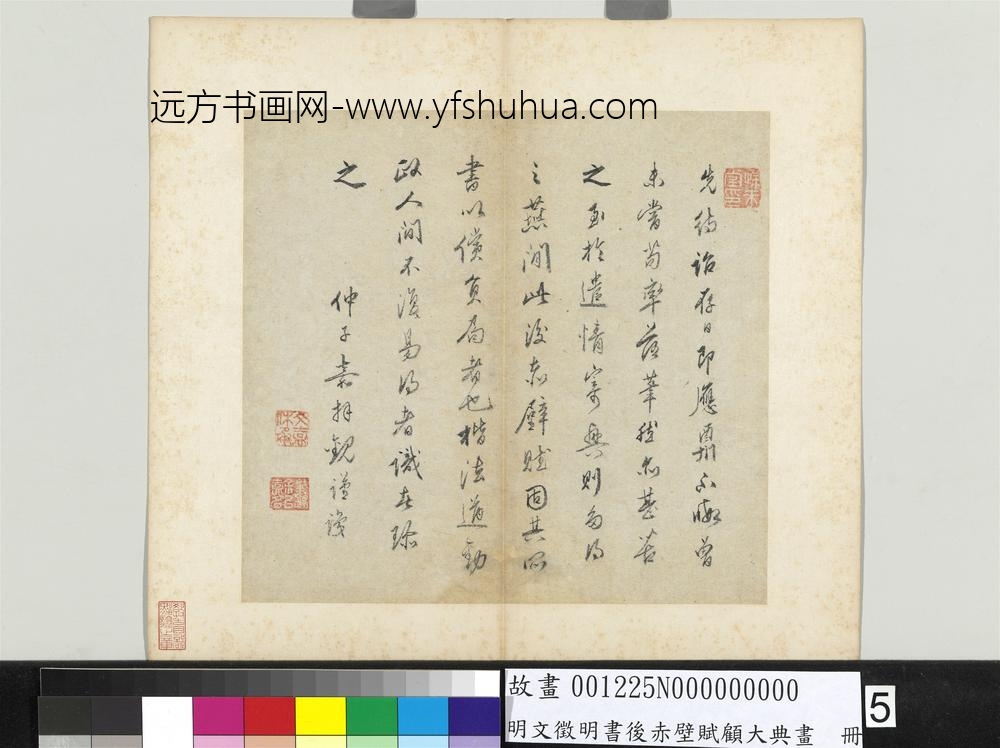 远方书画网-www.yfshuhua.com
先待詔存日即應酬不暇曾
未嘗苟率落筆然亦甚苦
之至於遣情寄興則多得
之燕閒此後赤壁賦固其所
書以償負局者也楷法遒勁
政人間不復易得者識者珍
之
仲子嘉拜觀謹識
故畫 001225N000000000
明文徵明書後赤壁賦顧大典畫 冊
5